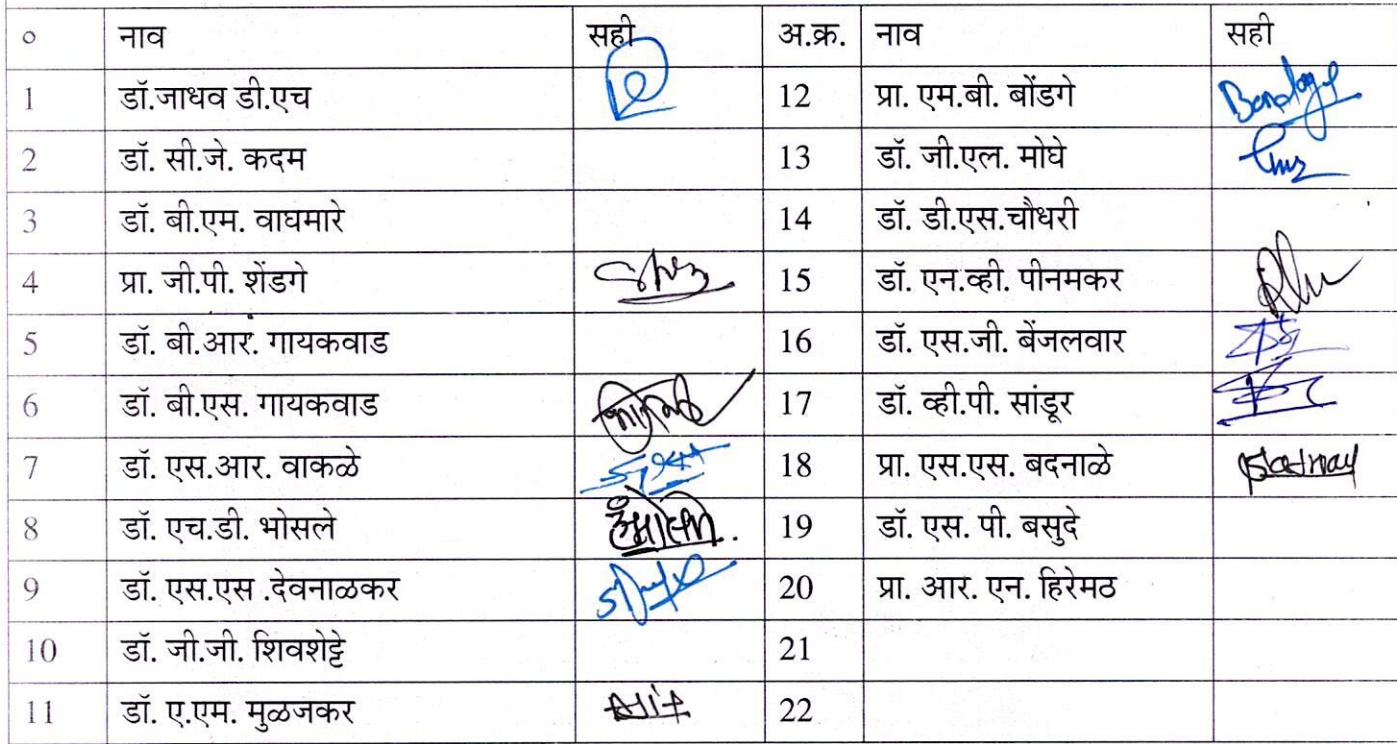 ० नाव सही अ.क्र. नाव सही
1 डॉ.जाधव डी.एच 12 प्रा. एम.बी. बोंडगे
2 डॉ. सी.जे. कदम 13 डॉ. जी.एल. मोघे
3 डॉ. बी.एम. वाघमारे 14 डॉ. डी.एस.चौधरी
4 प्रा. जी.पी. शेंडगे 15 डॉ. एन.व्ही. पीनमकर
5 डॉ. बी.आर. गायकवाड 16 डॉ. एस.जी. बेंजलवार
6 डॉ. बी.एस. गायकवाड 17 डॉ. व्ही.पी. सांडूर
7 डॉ. एस.आर. वाकळे 18 प्रा. एस.एस. बदनाळे
8 डॉ. एच.डी. भोसले 19 डॉ. एस. पी. बसुदे
9 डॉ. एस.एस .देवनाळकर 20 प्रा. आर. एन. हिरेमठ
10 डॉ. जी.जी. शिवशेट्टे 21
11 डॉ. ए.एम. मुळजकर 22